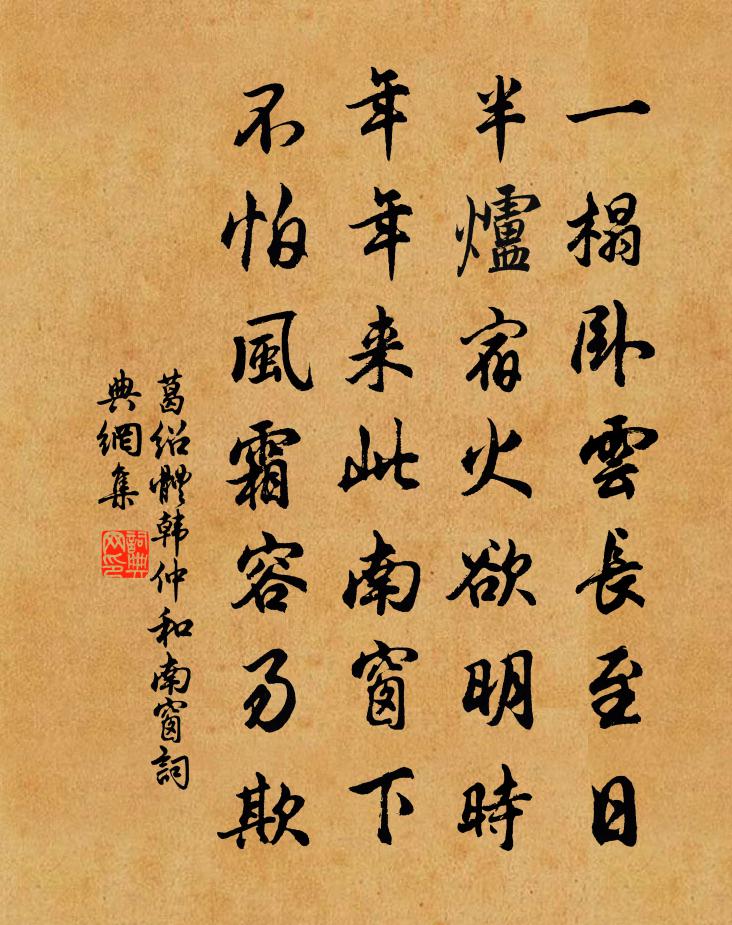 一榻卧雲長至日
半爐宿火欲明時
年年来此南窗下
不怕風霜容易欺
葛绍體韩仲和南窗詞
典網集
詞典
网印